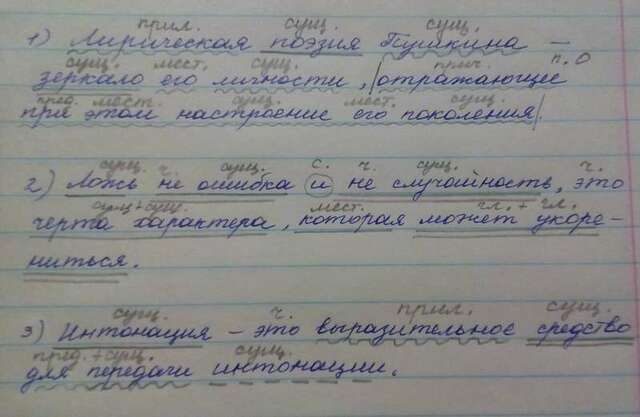 прил. сущ. сущ.
1) Лирическая поэзия Пушкина –
сущ. мест. сущ. прич. п. О
зеркало его личности, |отражающее
пред. мест. сущ. мест. сущ.
при этом настроение его поколения|.
сущ. ч. сущ. с. ч. сущ. ч.
2) Ложь не ошибка и не случайность, это
сущ+сущ. мест. гл. + гл.
черта характера, которая может укоре-
ниться.
сущ. ч. прил. сущ.
3) Интонация – это выразительное средство
пред. + сущ. сущ.
для передачи интонации.